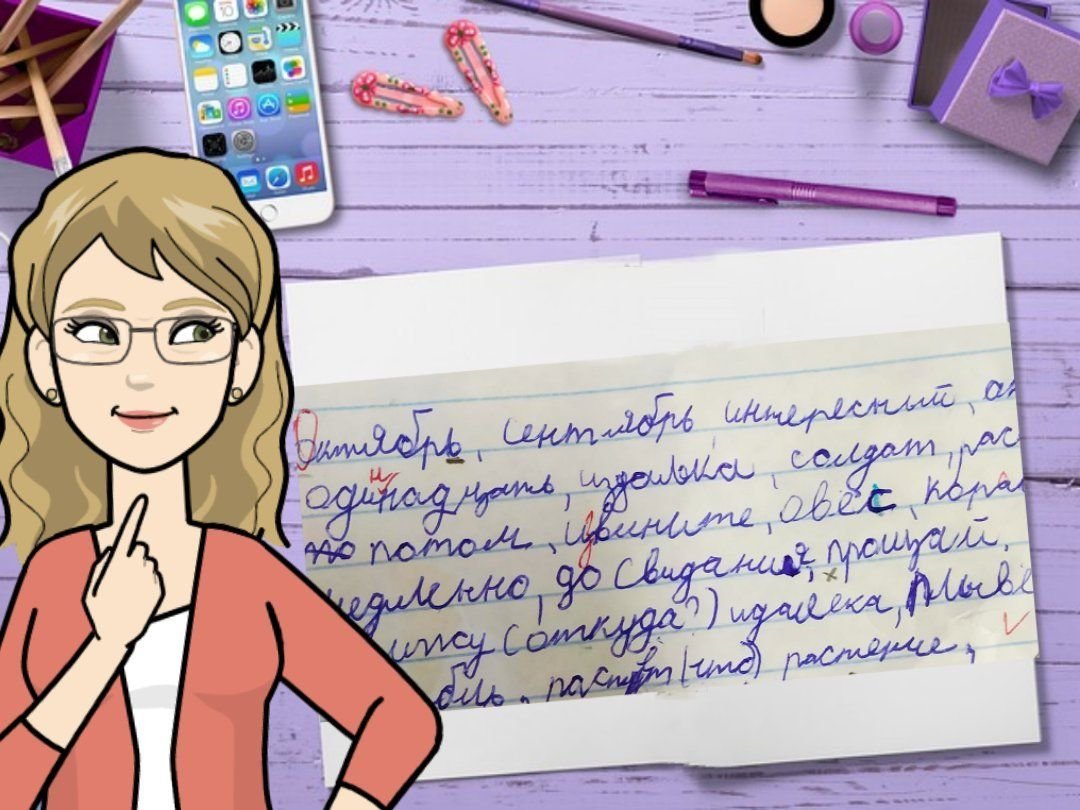 Октябрь, сентябрь, интересный,
одинадцать, солдат, рас
потом, извините, овес, кора
медленно, до свидания, прощай.
ижу (откуда?) издалека, плыве
бль, (что) растение,